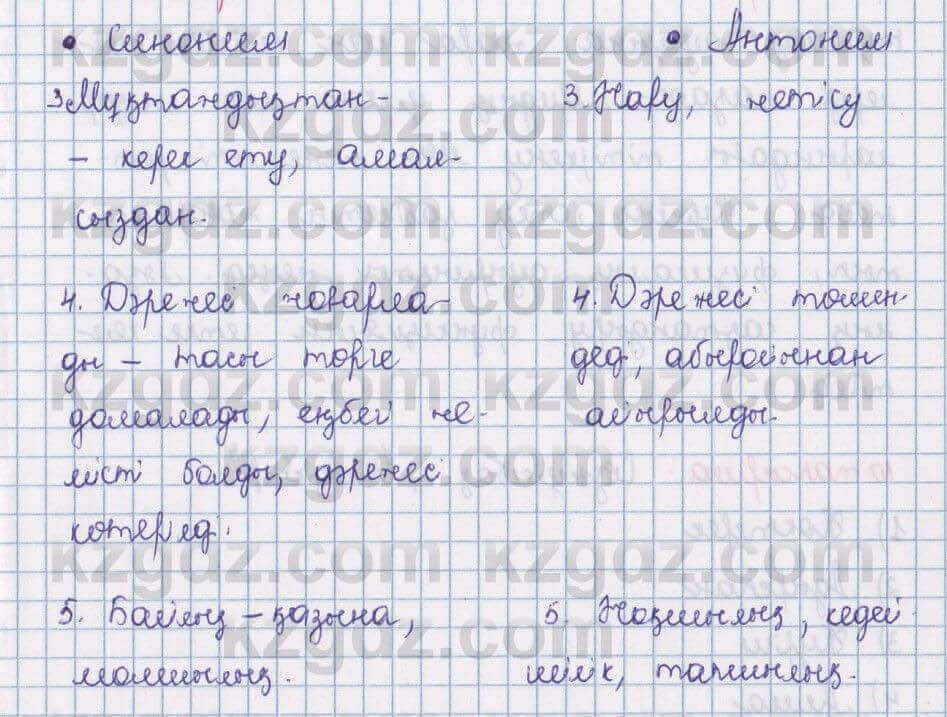 • Синоним
3. Мұқтаждықтан -
- керек ету, амал-
сыздан.
4. Дәрежесі жоғарла-
ды – тасы төрге
домалады, еңбегі же-
місті болды, дәрежесі
көтерілді.
5. Байлық – қазына,
молшылық.
• Антоним
3. Жару, жетісу
4. Дәрежесі төмен-
деді, абыройынан
айырылды.
5. Жоқшылық, кедей
шілік, тапшылық.
kzgdz.com